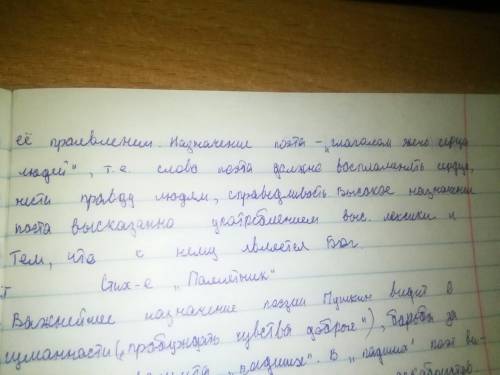 её проявлении. Назначение поэта - „глаголом жечь сердца
людей", т.е. слово поэта должно воспламенять сердца,
нести правду людям, справедливость. Высокое назначение
поэта высказанно употреблением выс. лексики и
тем, что к нему является Бог.
Стих-е „Памятник"
Важнейшее назначение поэзии Пушкин видит в
гуманности („пробуждать чувства добрые"), борьбе за
"падших". В „падших" поэт